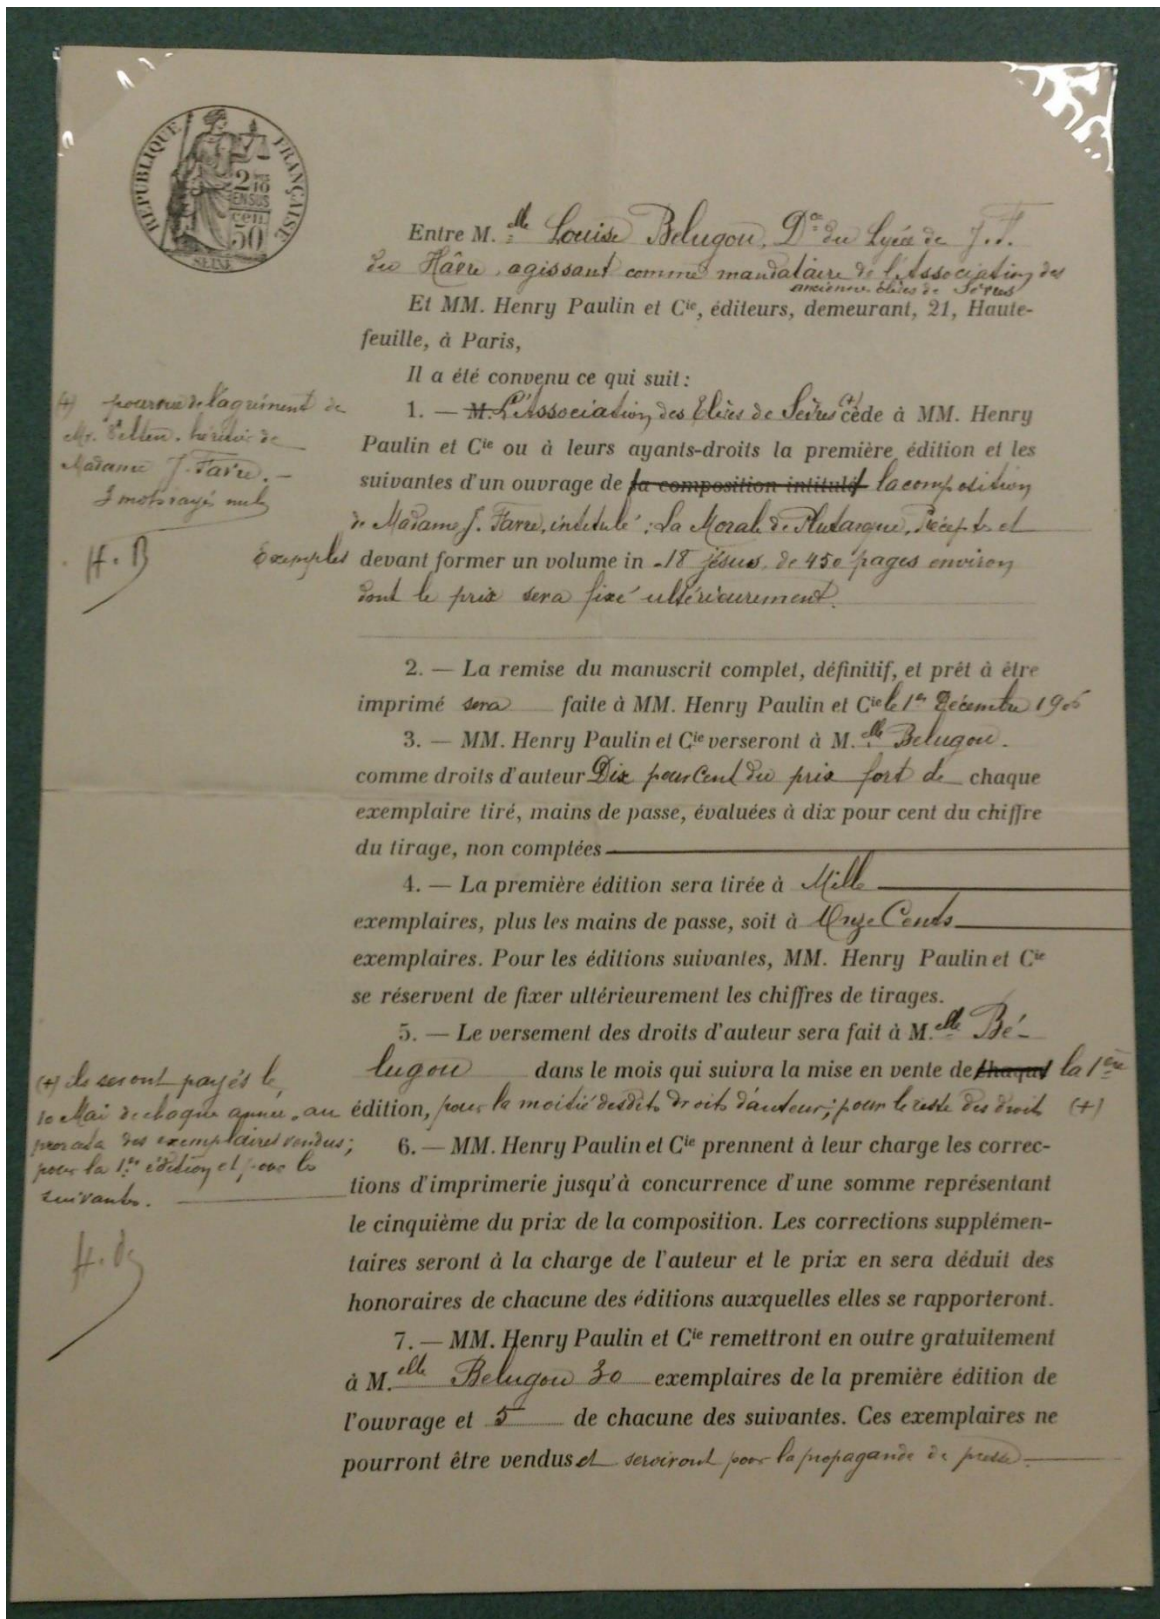 RÉPUBLIQUE FRANÇAISE
2 10
EN SUS
50 cen
SEINE
Entre M.elle Louise Belugou, Dce du Lycée de J. F.
du Hâvre, agissant comme mandataire de l'Association des
anciennes élèves de Sèvres
Et MM. Henry Paulin et Cie, éditeurs, demeurant, 21, Haute-
feuille, à Paris,
Il a été convenu ce qui suit :
1. — M. L'Association des Elèves de Sèvres (+) cède à MM. Henry
Paulin et Cie ou à leurs ayants-droits la première édition et les
suivantes d'un ouvrage de sa composition intitulé la composition
de Madame J. Favre, intitulé : La Morale de Plutarque, Préceptes et
Exemples devant former un volume in -18 jésus, de 450 pages environ
dont le prix sera fixé ultérieurement.
(+) pourvue de l'agrément de
Mr. héritier de
Madame J. Favre. —
3 mots rayés nuls
H. B
2. — La remise du manuscrit complet, définitif, et prêt à être
imprimé sera faite à MM. Henry Paulin et Cie le 1er Décembre 190
3. — MM. Henry Paulin et Cie verseront à M.elle Belugou.
comme droits d'auteur Dix pour Cent du prix fort de chaque
exemplaire tiré, mains de passe, évaluées à dix pour cent du chiffre
du tirage, non comptées
4. — La première édition sera tirée à Mille
exemplaires, plus les mains de passe, soit à Onze Cents
exemplaires. Pour les éditions suivantes, MM. Henry Paulin et Cie
se réservent de fixer ultérieurement les chiffres de tirages.
5. — Le versement des droits d'auteur sera fait à M.elle Bé-
lugou dans le mois qui suivra la mise en vente de chaque la 1ère
édition, pour la moitié desdits droits d'auteur ; pour le reste des droits (+)
(+) ils seront payés le
10 Mai de chaque année, au
prorata des exemplaires vendus ;
pour la 1ère édition et pour les
suivantes.
6. — MM. Henry Paulin et Cie prennent à leur charge les correc-
tions d'imprimerie jusqu'à concurrence d'une somme représentant
le cinquième du prix de la composition. Les corrections supplémen-
taires seront à la charge de l'auteur et le prix en sera déduit des
honoraires de chacune des éditions auxquelles elles se rapporteront.
7. — MM. Henry Paulin et Cie remettront en outre gratuitement
à M.elle Belugou 30 exemplaires de la première édition de
l'ouvrage et 5 de chacune des suivantes. Ces exemplaires ne
pourront être vendus et serviront pour la propagande de presse.